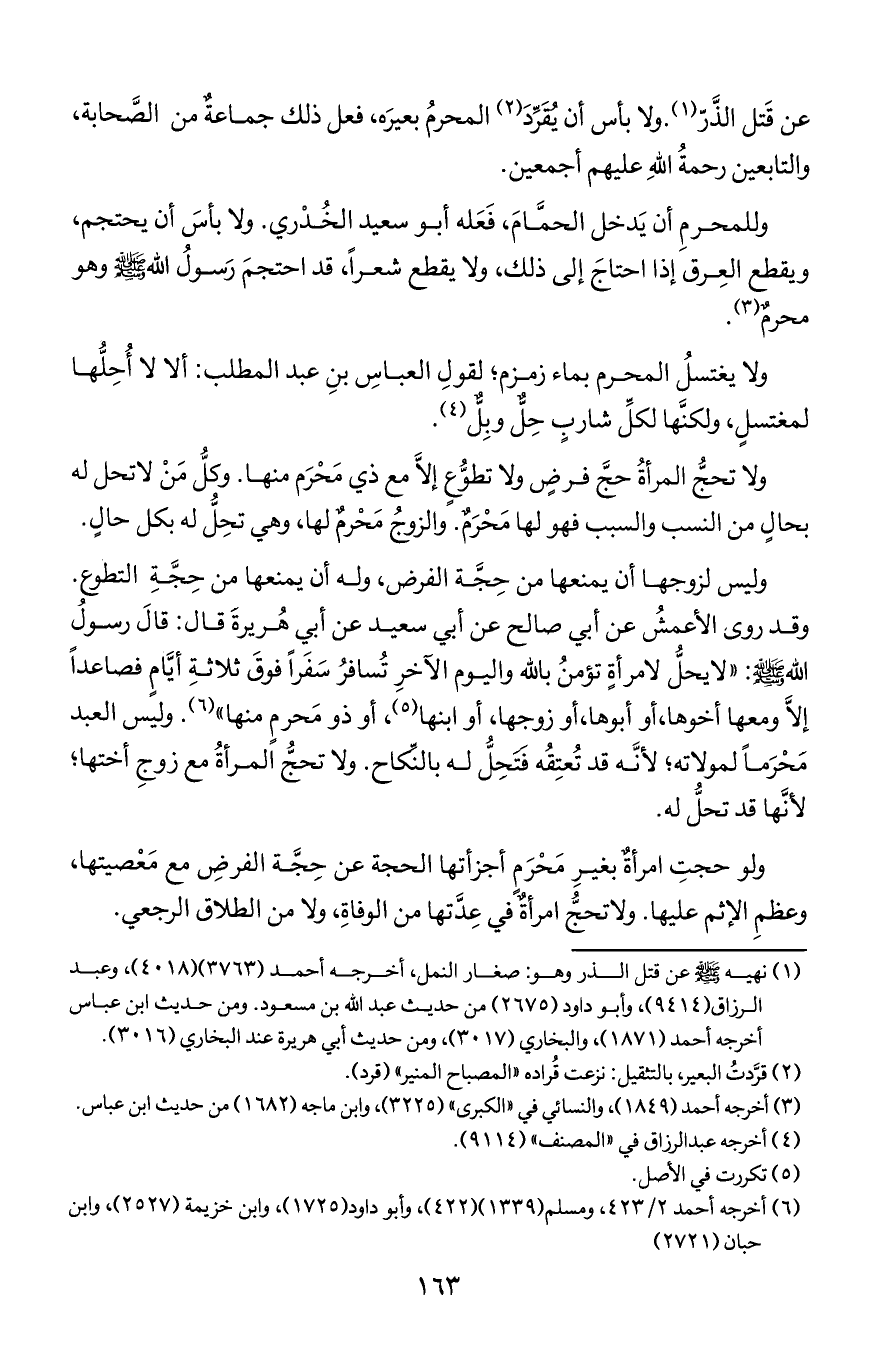 عن قَتل الذَّرّ(١).ولا بأس أن يُقَرِّدَ(٢) المحرمُ بعيرَه، فعل ذلك جماعةٌ من الصَّحابة،
والتابعين رحمةُ اللهِ عليهم أجمعين.
وللمحرمِ أن يَدخل الحمَّامَ، فَعَله أبو سعيد الخُدْري. ولا بأسَ أن يحتجم،
ويقطع العِرق إذا احتاجَ إلى ذلك، ولا يقطع شعراً، قد احتجمَ رَسولُ اللهﷺ وهو
محرمٌ(٣).
ولا يغتسلُ المحرم بماء زمزم؛ لقولِ العباسِ بنِ عبد المطلب: ألا لا أُحِلُّها
لمغتسلٍ، ولكنَّها لكلِّ شاربٍ حِلٌّ وبِلٌّ(٤).
ولا تحجُّ المرأةُ حجَّ فرضٍ ولا تطوُّعٍ إلاَّ مع ذي مَحْرَم منها. وكلُّ مَنْ لاتحل له
بحالٍ من النسب والسبب فهو لها مَحْرَمٌ. والزوجُ مَحْرمٌ لها، وهي تحِلُّ له بكل حالٍ.
وليس لزوجها أن يمنعها من حِجَّة الفرض، وله أن يمنعها من حِجَّةِ التطوع.
وقد روى الأعمشُ عن أبي صالح عن أبي سعيد عن أبي هُريرةَ قال: قالَ رسولُ
اللهﷺ: «لايحلُّ لامرأةٍ تؤمنُ بالله واليوم الآخرِ تُسافرُ سَفَراً فوقَ ثلاثةِ أيَّامٍ فصاعداً
إلاَّ ومعها أخوها،أو أبوها،أو زوجها، أو ابنها(٥)، أو ذو مَحرمٍ منها»(٦). وليس العبد
مَحْرَماً لمولاته؛ لأنَّه قد تُعتِقُه فَتَحِلُّ له بالنِّكاح. ولا تحجُّ المرأةُ مع زوجِ أختها؛
لأنَّها قد تحلُّ له.
ولو حجتِ امرأةٌ بغيرِ مَحْرَمٍ أجزأتها الحجة عن حِجَّة الفرضِ مع مَعْصيتها،
وعظمِ الإثم عليها. ولاتحجُّ امرأةٌ في عِدَّتها من الوفاةِ، ولا من الطلاق الرجعي.
(١) نهيه ﷺ عن قتل الذر وهو: صغار النمل، أخرجه أحمد (٣٧٦٣)(٤٠١٨)، وعبد
الرزاق(٩٤١٤)، وأبو داود (٢٦٧٥) من حديث عبد الله بن مسعود. ومن حديث ابن عباس
أخرجه أحمد (١٨٧١)، والبخاري (٣٠١٧)، ومن حديث أبي هريرة عند البخاري (٣٠١٦).
(٢) قرَّدتُ البعير، بالتثقيل: نزعت قُراده «المصباح المنير» (قرد).
(٣) أخرجه أحمد (١٨٤٩)، والنسائي في «الكبرى» (٣٢٢٥)، وابن ماجه (١٦٨٢) من حديث ابن عباس.
(٤) أخرجه عبدالرزاق في «المصنف» (٩١١٤).
(٥) تكررت في الأصل.
(٦) أخرجه أحمد ٤٢٣/٢، ومسلم(١٣٣٩)(٤٢٢)، وأبو داود(١٧٢٥)، وابن خزيمة (٢٥٢٧)، وابن
حبان (٢٧٢١)
١٦٣